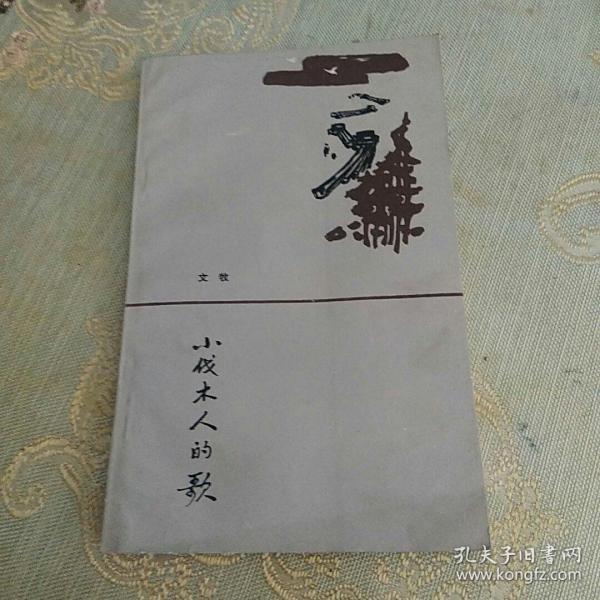 文牧
小伐木人的歌
孔夫子旧書网
www.kongfz.com